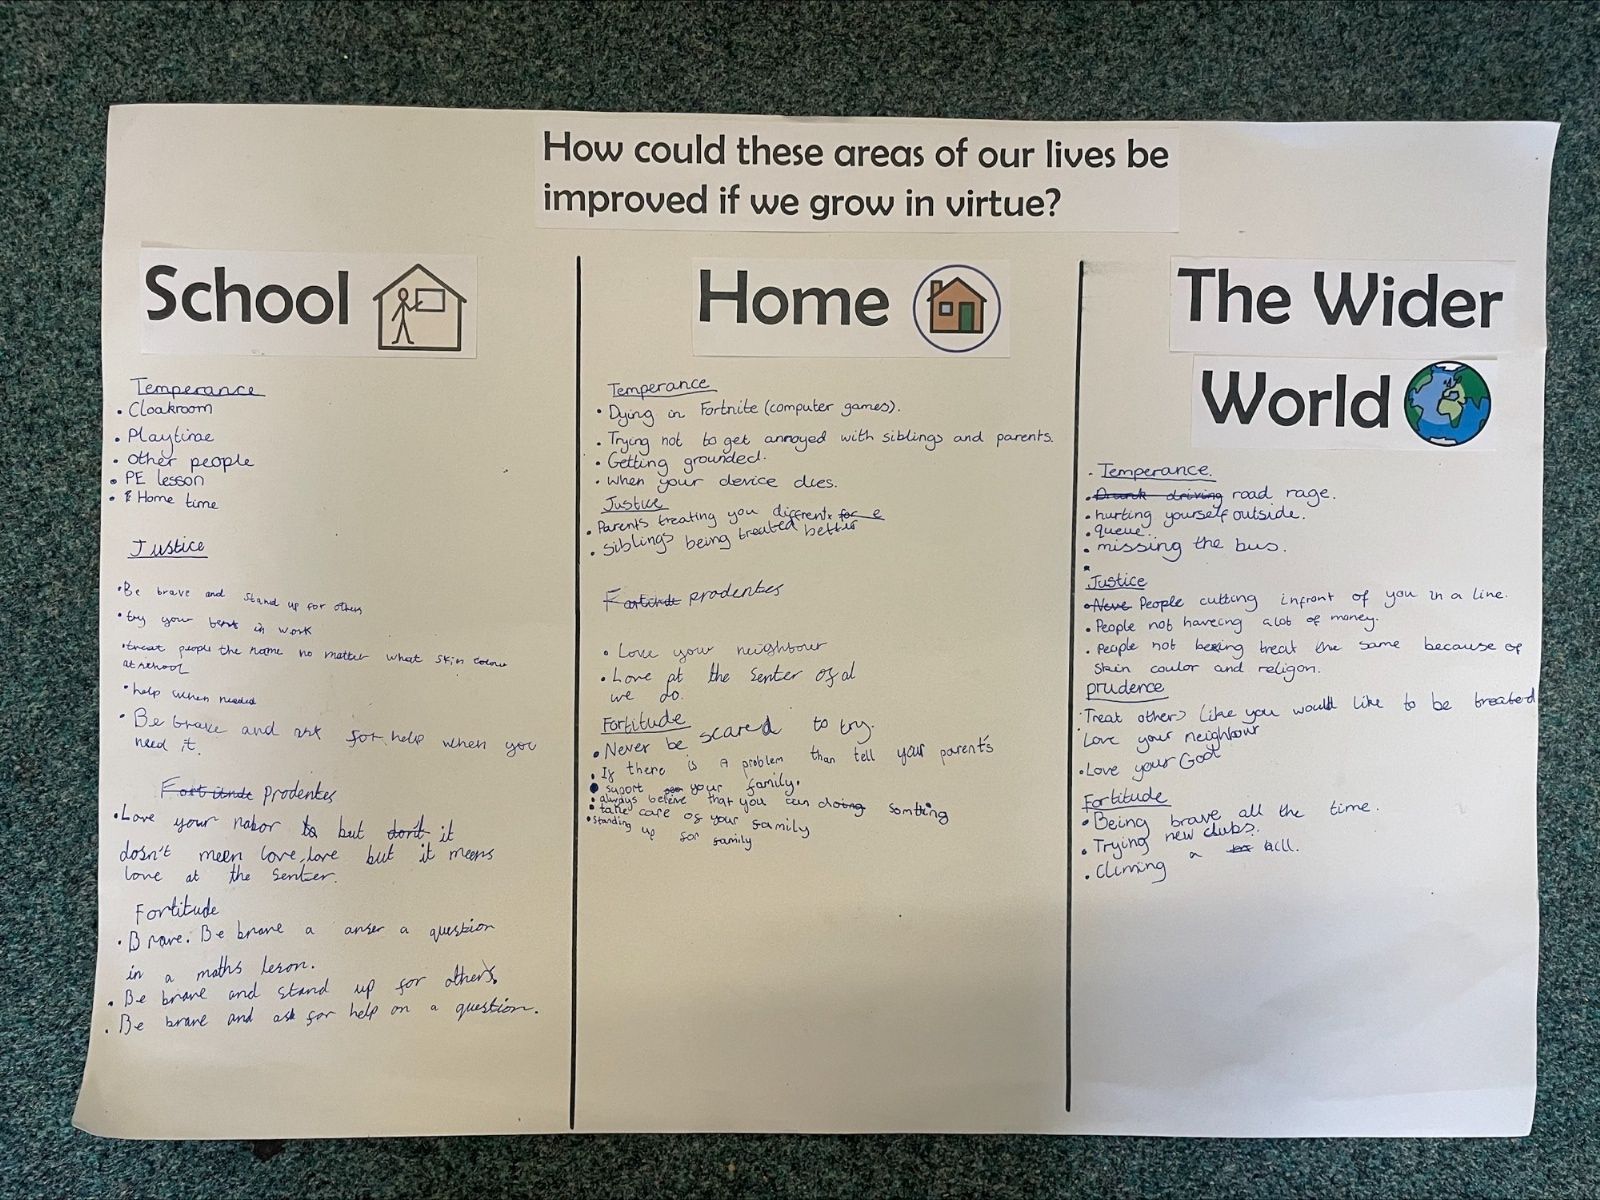 How could these areas of our lives be
improved if we grow in virtue?
School
Temperance
• Cloakroom
• Playtime
• Other people
• PE lesson
• Home time
Justice
• Be brave and stand up for others
• try your best in work
• treat people the same no matter what skin colour
at school
• help when needed
• Be brave and ask for help when you
need it.
Fortitude prodentes
• Love your nabor to but don't it
dosn't meen love, love but it meens
love at the senter.
Fortitude
• Brave. Be brave a anser a question
in a maths leson.
• Be brave and stand up for others.
• Be brave and ask for help on a question.
Home
Temperance
• Dying in Fortnite (computer games).
• Trying not to get annoyed with siblings and parents.
• Getting grounded.
• when your device dies.
Justice
• Parents treating you different. for e
• Siblings being treated better
Fortitude prodentes
• Love your neighbour
• Love at the senter of al
we do.
Fortitude
• Never be scared to try.
• If there is a problem than tell your parents
• suport your family.
• always beleive that you can doing somthing
• take care of your family
• standing up for family
The Wider
World
• Temperance
• Drunk driving road rage.
• hurting yourself outside.
• queue.
• missing the bus.
Justice
• Never People cutting infront of you in a line.
• People not haveing a lot of money.
• People not being treat the same because of
skin coulor and religon.
prudence
• Treat others like you would like to be treated
Love your neighbour
• Love your God
Fortitude
• Being brave all the time.
• Trying new clubs.
• Climing a hill.